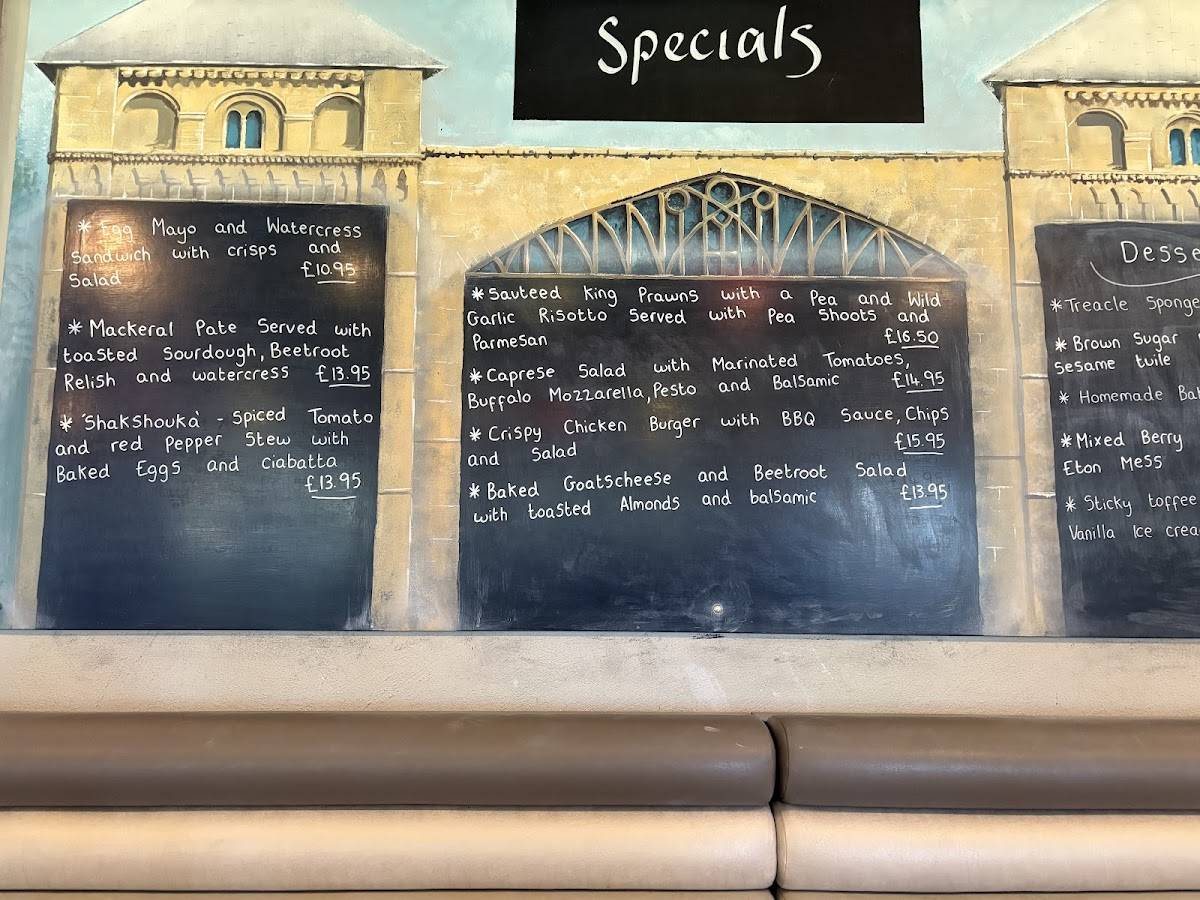 Specials
* Egg Mayo and Watercress
Sandwich with crisps and
Salad £10.95
* Mackeral Pate Served with
toasted Sourdough, Beetroot
Relish and watercress £13.95
* 'Shakshouka' - Spiced Tomato
and red Pepper Stew with
Baked Eggs and Ciabatta
£13.95
* Sauteed King Prawns with a Pea and Wild
Garlic Risotto Served with Pea Shoots and
Parmesan £16.50
* Caprese Salad with Marinated Tomatoes,
Buffalo Mozzarella, Pesto and Balsamic £14.95
* Crispy Chicken Burger with BBQ Sauce, Chips
and Salad £15.95
* Baked Goatscheese and Beetroot Salad
with toasted Almonds and balsamic £13.95
Desse
* Treacle Sponge
* Brown Sugar
Sesame tuile
* Homemade Ba
* Mixed Berry
Eton Mess
* Sticky toffee
Vanilla Ice crea